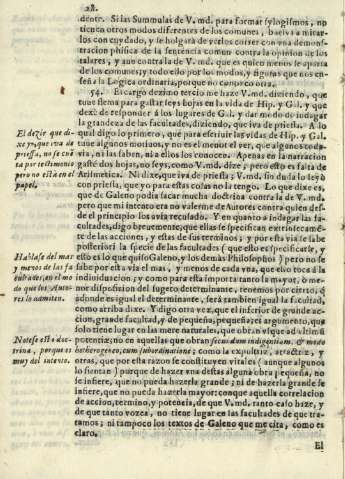 28.
dente. Si las Summulas de V. md. para formar sylogismos, no
tienen otros modos diferentes de los comunes, bativa a mirar-
los con cuydado, y se holgará de verlos correr con vna demons-
tracion phisica de la sentencia comun contra la opinion de los
talares, y aun contra la de V. md. que es quien menos se aparta
de los comunes; y todo esso por los modos, y figuras que nos en-
seña la Logica ordinaria, porque no compre otra.
54. El cargo dezimo tercio me haze V. md. diziendo, que
tuue flema para gastar seys hojas en la vida de Hip. y Gal. y que
dexè de responder á los lugares de G. l. y dar modo de indagar
la grandeza de las facultades, diziendo, que iva de priessa. A lo
qual digo lo primero, que para escriuir las vidas de Hip. y Gal.
tuue algunos motiuos, y no es el menor el ver, que algunos toda-
via, ni las saben, ni a ellos los conocen. Apenas en la narracion
gastè dos hojas, no seys, como V. md. dize; pero esto es falta de
Arismetica. Ni dixe, que iva de priessa; V. md. sin duda lo leyò
con priessa, que yo para estas colas no la tengo. Lo que dixe es,
que de Galeno podia sacar mucha doctrina contra la de V. md.
pero que mi intento era no valerme de Autores contra quien des-
de el principio los avia recusado. Y en quanto a indagar las fa-
cultades, digo breuemente, que ellas se especifican extrinsecamẽ-
te de las acciones, y estas de sus terminos; y por esta via se sabe
posteriori la specie de las facultades (que esto es especificarse, y
esto es lo que quiso Galeno, y los demás Philosophos) pero no se
sabe por esta via el mas, y menos de cada vna, que esso toca á la
indiuiduacion; y como para esta importa tanto la mayor, ò me-
nor disposicion del sugeto determinante, tenemos por cierto, q̃
adonde es igual el determinante, serà tambien igual la facultad,
como arriba dixe. Y digo otra vez, que el inferior de grande ac-
cion, grande facultad, y de pequeña, pequeña; es argumento, que
solo tiene lugar en las mere naturales, que obran vsque ad vltimũ
potentiæ; no en aquellas que obran secundum indigentiam, & modo
hetherogeneo, cum subordinatione; como la expultrix, attractrix, y
otras, que por esta razon se constituyen vitales (aunque algunos
lo sientan) porque de hazer vna destas alguna obra pequeña, no
se infiere, que no pueda hazerla grande; ni de hazerla grande se
infiere, que no pueda hazerla mayor: conque aquella correlacion
de accion, termino, y potencia, de que V. md. tanto caso haze, y
de que tanto vozea, no tiene lugar en las facultades de que tra-
tamos; ni tampoco los textos de Galeno que me cita, como es
claro.
El
El dezir que di-
xe yo, que iva de
priessa, no se cuẽ-
ta por testimonio
pero no està en el
papel.
Hablase del mas
y menos de las fa
cultades, en el mo
do que los Auto-
res lo admiten.
Notese esta doc-
trina, porque es
muy del intento.